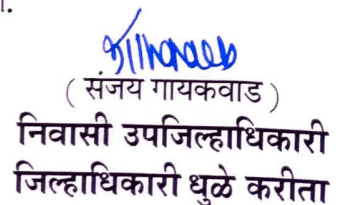 ( संजय गायकवाड )
निवासी उपजिल्हाधिकारी
जिल्हाधिकारी धुळे करीता